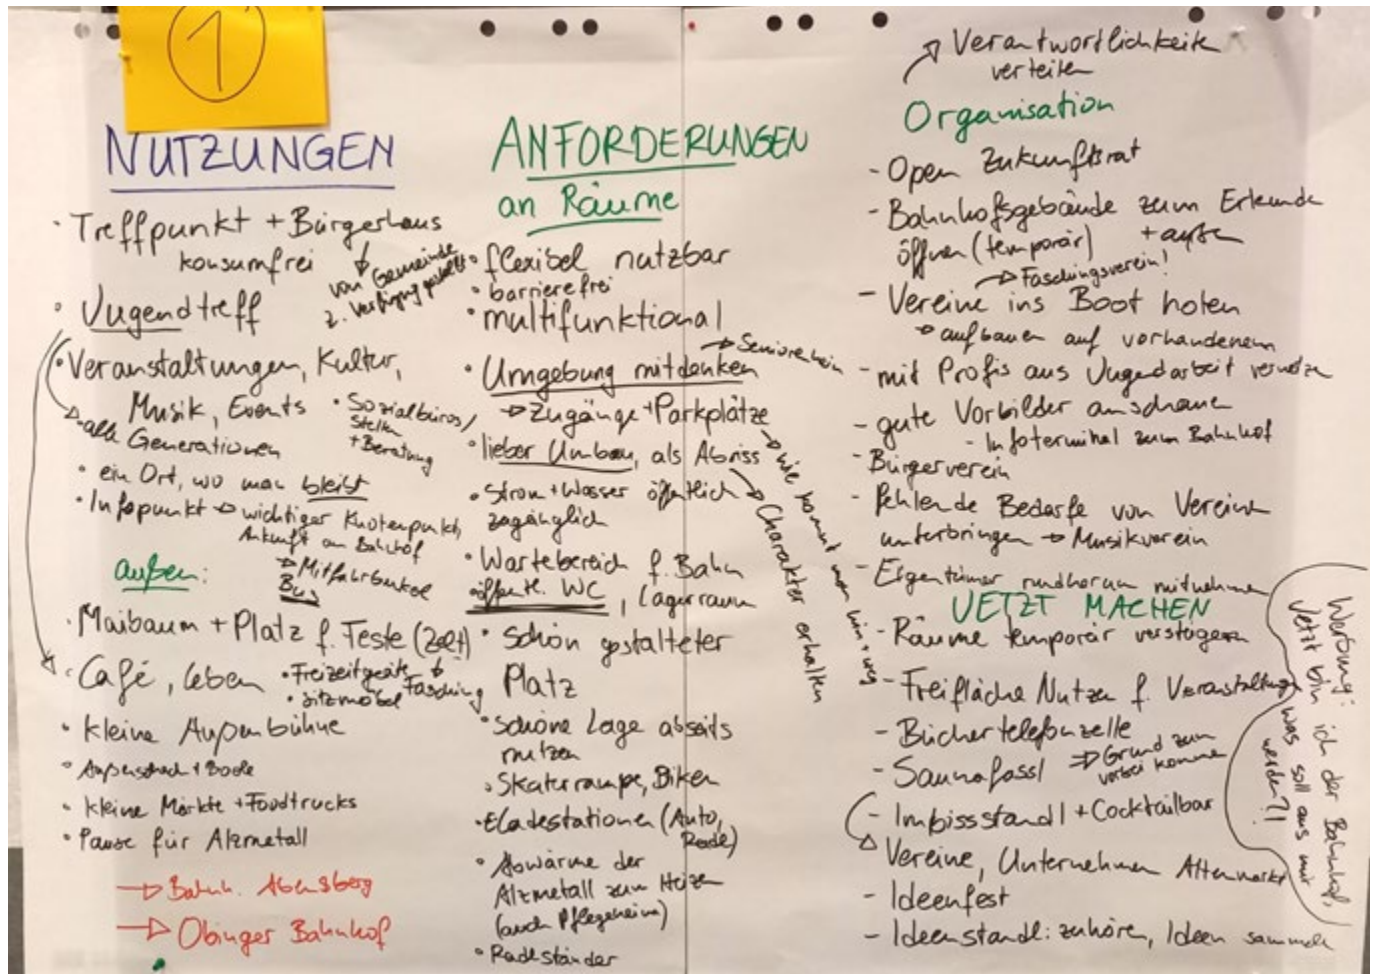 1
NUTZUNGEN
· Treffpunkt + Bürgerhaus
konsumfrei
von Gemeinde
z. Verfügung gestellt
· Jugendtreff
· Veranstaltungen, Kultur,
Musik, Events
alle Generationen
· Sozialbüros/
Stellen
+ Beratung
· ein Ort, wo man bleibt
· Infopunkt → wichtiger Knotenpunkt,
Ankunft am Bahnhof
→ Mitfahrbankerl
Bus
außen:
· Maibaum + Platz f. Feste (Zelt)
Fasching
· Café, Leben
· Freizeitgeräte
· Sitzmöbel
· kleine Außenbühne
· Außenschach + Boule
· kleine Märkte + Foodtrucks
· Pause für Alzmetall
→ Bahnh. Abensberg
→ Obinger Bahnhof
ANFORDERUNGEN
an Räume
· flexibel nutzbar
· barrierefrei
· multifunktional
· Umgebung mitdenken
→ Seniorenheim
→ Zugänge + Parkplätze
→ wie kommt man hin + weg
· lieber Umbau, als Abriss
→ Charakter erhalten
· Strom + Wasser öffentlich
zugänglich
· Wartebereich f. Bahn
öffentl. WC, Lagerraum
· schön gestalteter
Platz
· schöne Lage abseits
nutzen
· Skaterrampe, Biken
· E Ladestationen (Auto,
Rade)
· Abwärme der
Alzmetall zum Heizen
(auch Pflegeheim)
· Radständer
→ Verantwortlichkeiten
verteilen
Organisation
- Open Zukunftsrat
- Bahnhofsgebäude zum Erkunden
öffnen (temporär) + außen
→ Faschingsverein!
- Vereine ins Boot holen
→ aufbauen auf vorhandenem
- mit Profis aus Jugendarbeit vernetzen
- gute Vorbilder anschauen
- Infoterminal zum Bahnhof
- Bürgerverein
- fehlende Bedarfe von Vereinen
unterbringen → Musikverein
- Eigentümer rundherum mitnehmen
JETZT MACHEN
- Räume temporär
- Freifläche Nutzen f. Veranstaltungen
- Büchertelefonzelle
- Saunafassl
⇒ Grund zum
vorbei kommen
- Imbissstandl + Cocktailbar
→ Vereine, Unternehmen Altenmarkt
- Ideenfest
- Ideenstandl: zuhören, Ideen sammeln
Werbung:
Jetzt bin ich der Bahnhof,
was soll aus mir
werden?!